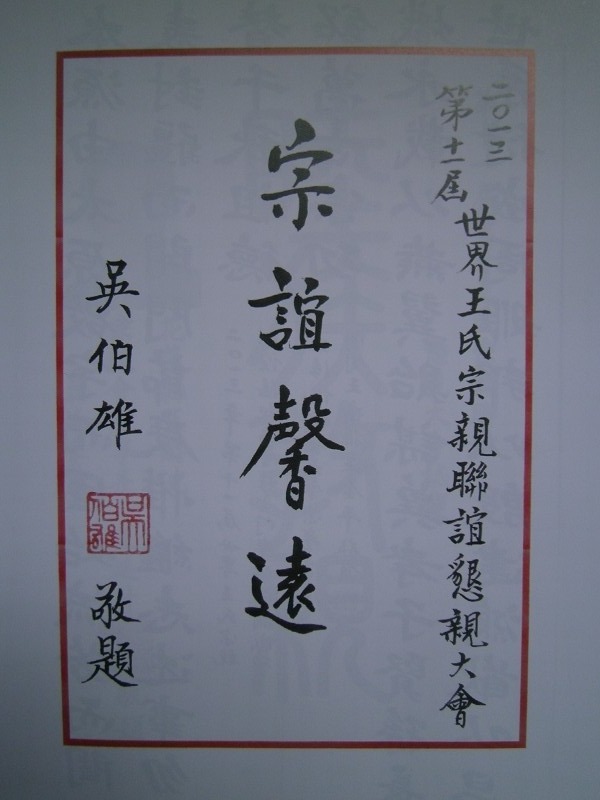 二〇一三
第十一屆
世界王氏宗親聯誼懇親大會
宗誼馨遠
吳伯雄
吳伯雄
敬題